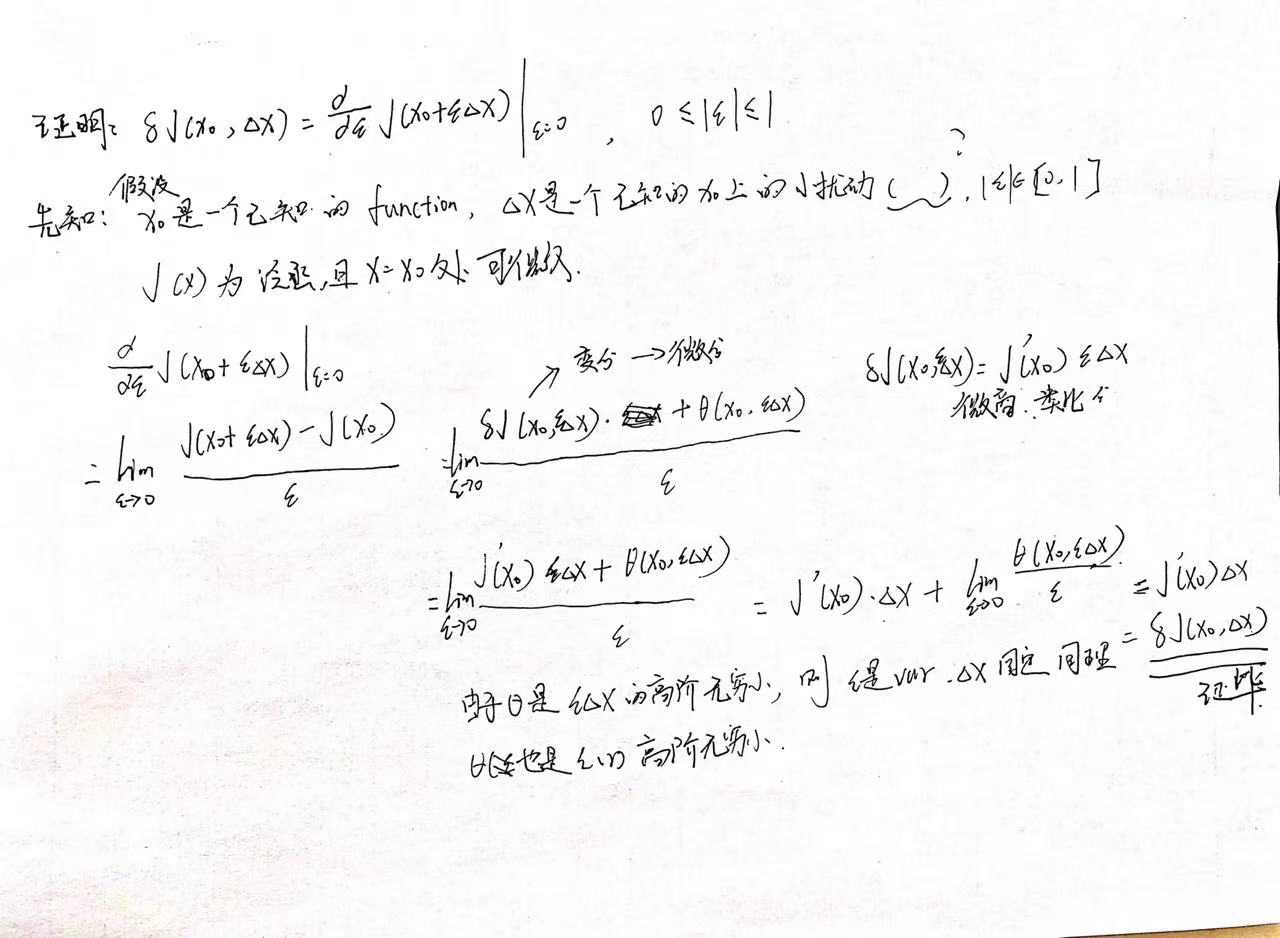 证明: δJ(x₀, Δx) = d/dε J(x₀+εΔx)|ε=0 , 0 ≤ |ε| ≤ 1
假设
先知: x₀是一个已知的 function, Δx是一个已知的x₀上的小扰动 ( ) ? , |ε|∈[0,1]
J(x) 为泛函,且 x=x₀ 处 可微分.
d/dε J(x₀+εΔx)|ε=0
变分 → 微分
δJ(x₀,εΔx) = J'(x₀) εΔx
微商 类比
= lim ε→0 (J(x₀+εΔx) − J(x₀))/ε = lim ε→0 (δJ(x₀,εΔx)· + θ(x₀,εΔx))/ε
= lim ε→0 (J'(x₀) εΔx + θ(x₀,εΔx))/ε = J'(x₀)·Δx + lim ε→0 θ(x₀,εΔx)/ε = J'(x₀)Δx
= δJ(x₀,Δx)
证毕.
由于 θ是 εΔx 的高阶无穷小, 则 ε是 var. Δx 固定 同理
也是 ε的 高阶无穷小.